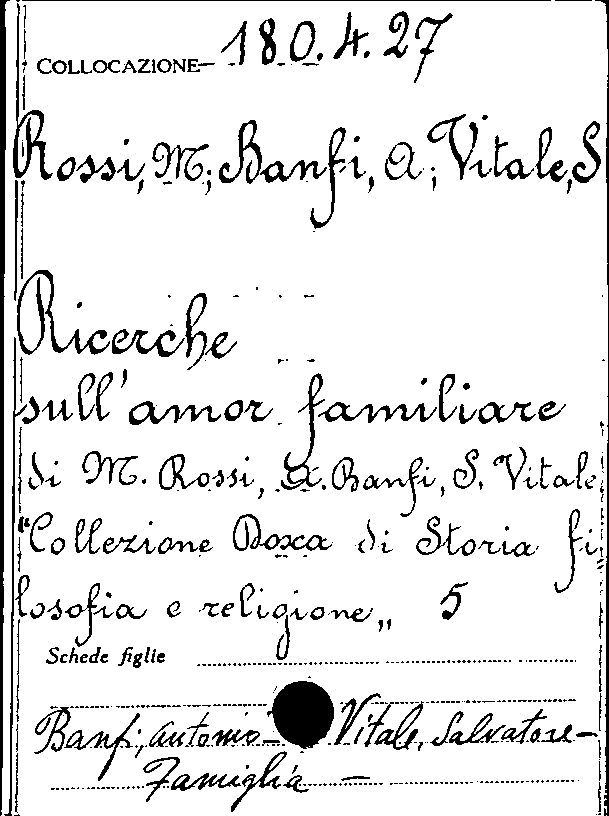 COLLOCAZIONE 180.4.27
Rossi, M; Banfi, A; Vitale, S
Ricerche
sull'amor familiare
di M. Rossi, A. Banfi, S. Vitale
"Collezione Doxa di Storia fi
losofia e religione„ 5
Schede figlie
Banfi, Antonio – Vitale, Salvatore –
Famiglia –